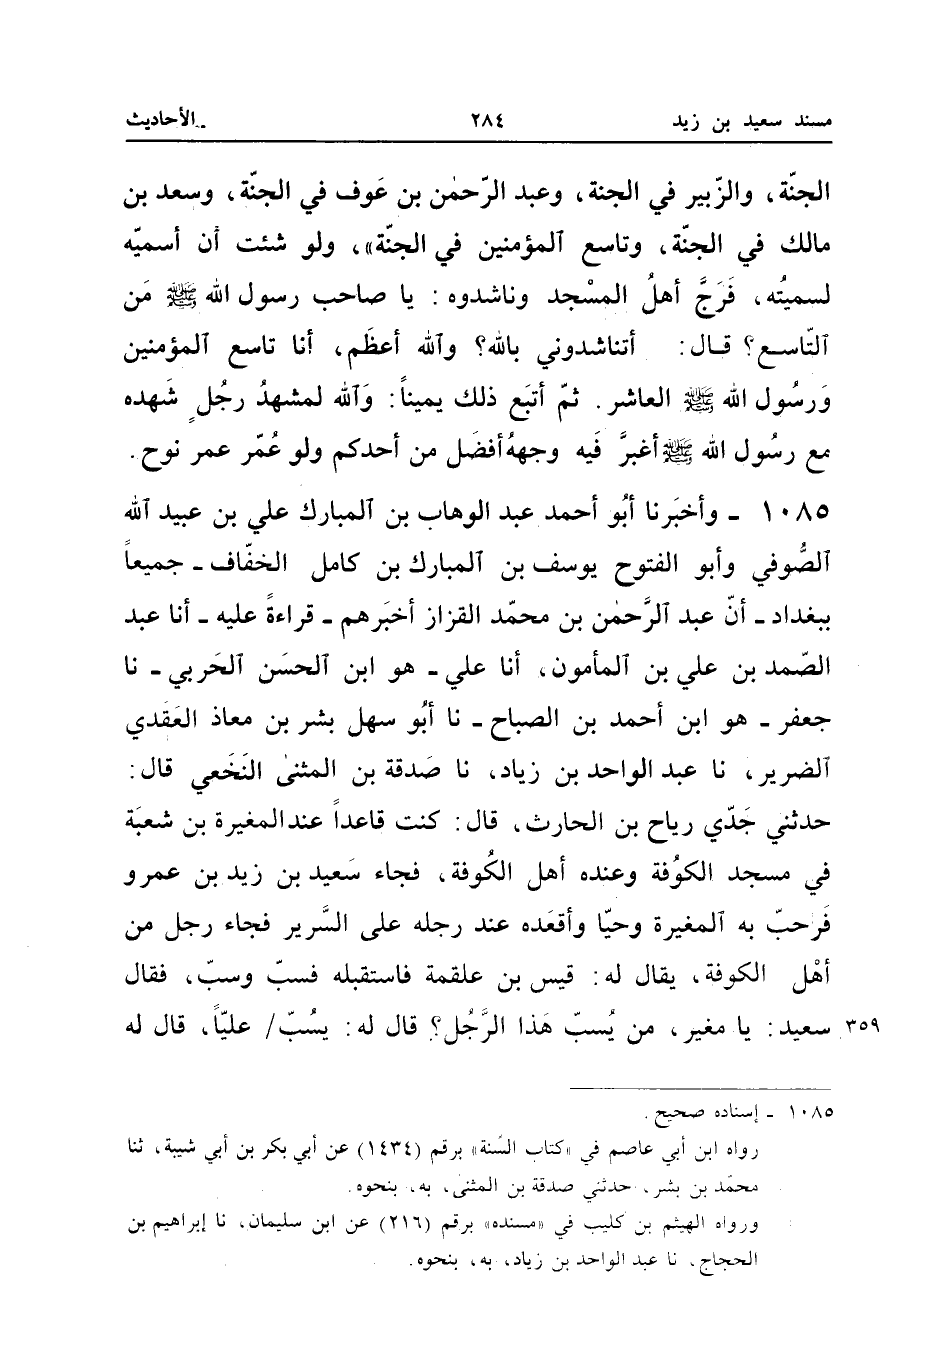 مسند سعيد بن زيد ٢٨٤ الأحاديث
الجنّة، والزّبير في الجنة، وعبد الرّحمٰن بن عَوف في الجنّة، وسعد بن
مالك في الجنّة، وتاسع ٱلمؤمنين في الجنّة»، ولو شئت أن أسميّه
لسميتُه، فَرَجَّ أهلُ المسْجد وناشدوه: يا صاحب رسول الله ﷺ مَن
ٱلتّاسع؟ قال: أتناشدوني بالله؟ وٱلله أعظَم، أنا تاسع ٱلمؤمنين
وَرسُول الله ﷺ العاشر. ثمّ أتبَع ذلك يميناً: وَٱلله لمشهدُ رجُلٍ شَهده
مع رسُول الله ﷺ أغبرَّ فيه وجههُ أفضَل من أحدكم ولو عُمّر عمر نوح.
١٠٨٥ ـ وأخبَرنا أبُو أحمد عبد الوهاب بن ٱلمبارك علي بن عبيد ٱلله
ٱلصُّوفي وأبو الفتوح يوسف بن ٱلمبارك بن كامل الخفّاف ـ جميعاً
ببغداد ـ أنّ عبد ٱلرَّحمٰن بن محمّد القزاز أخبَرهم ـ قراءةً عليه ـ أنا عبد
الصّمد بن علي بن ٱلمأمون، أنا علي ـ هو ابن ٱلحسَن ٱلحَربي ـ نا
جعفر ـ هو ابن أحمد بن الصباح ـ نا أبُو سهل بشر بن معاذ العَقَدي
ٱلضرير، نا عبد الواحد بن زياد، نا صَدقة بن المثنىٰ النَخَعي قال:
حدثني جَدّي رياح بن الحارث، قال: كنت قاعداً عند المغيرة بن شعبَة
في مسجد الكوُفة وعنده أهل الكُوفة، فجاء سَعيد بن زيد بن عمرو
فَرحبّ به ٱلمغيرة وحيّا وأقعَده عند رجله على السَّرير فجاء رجل من
أهْل الكوفة، يقال له: قيس بن علقمة فاستقبله فسبّ وسبّ، فقال
٣٥٩ سعيد: يا مغير، من يُسبّ هَذا الرَّجُل؟ قال له: يسُبّ/ عليّاً، قال له
١٠٨٥ ـ إسناده صحيح.
رواه ابن أبي عاصم في «كتاب السُنة» برقم (١٤٣٤) عن أبي بكر بن أبي شيبة، ثنا
محمّد بن بشر، حدثني صدقة بن المثنى، به، بنحوه.
ورواه الهيثم بن كليب في «مسنده» برقم (٢١٦) عن ابن سليمان، نا إبراهيم بن
الحجاج، نا عبد الواحد بن زياد، به، بنحوه.